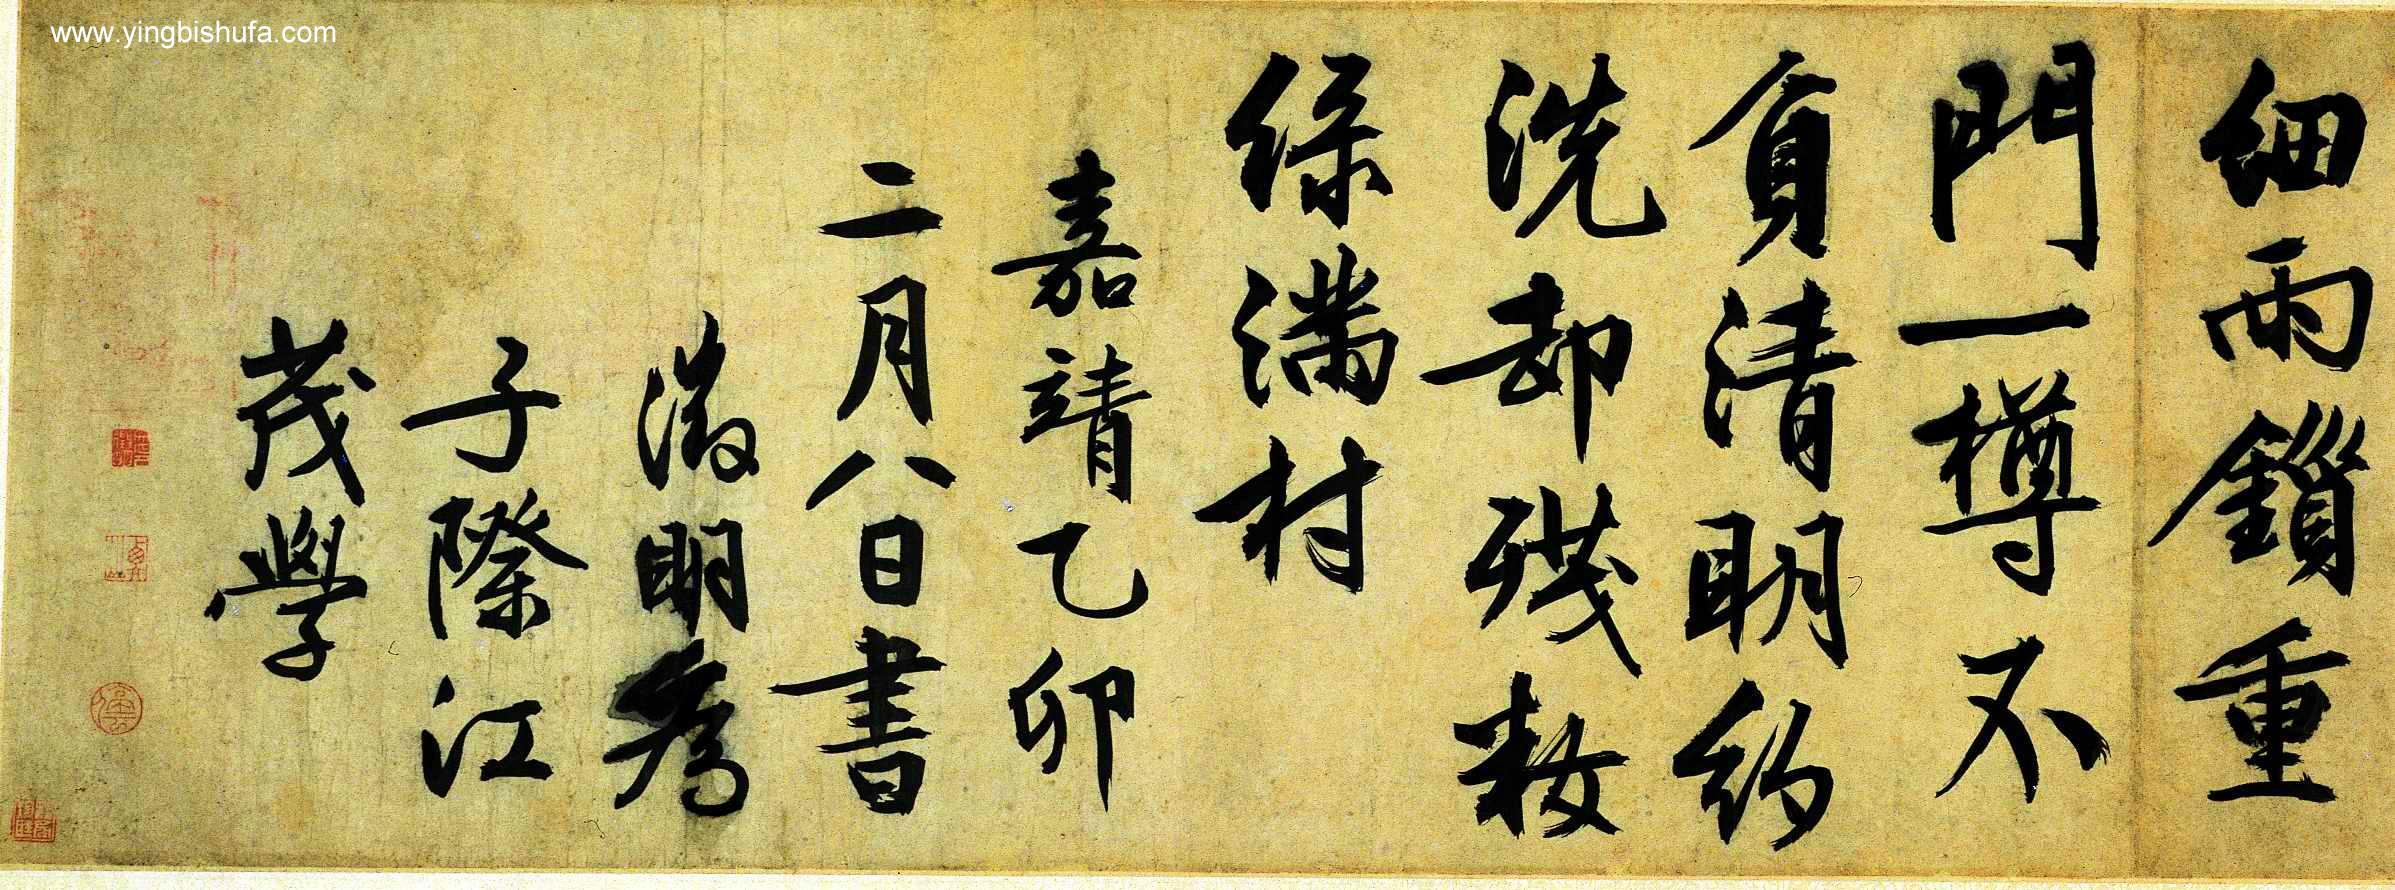 www.yingbishufa.com
細雨鎖重
門一樽不
負清明約
洗却殘妝
緑滿村
嘉靖乙卯
二月八日書
徵明為
子際江
茂學